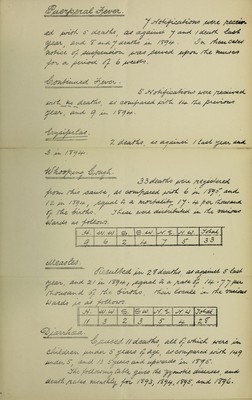 Puerperal Fever.
7 Notifications were receiv-
ed with 5 deaths, as against 7 and 1 death last
year, and 8 and 7 deaths in 1894. In these cases
notice of suspension was served upon the nurses
for a period of 6 weeks.
Continued Fever.
8 Notifications were received
with no deaths as compared with 14 the previous
year, and 9 in 1894.
Erysipelas.
2 deaths as against 1 last year and
3 in 1894.
Whooping Cough.
33 deaths were registered
from this cause, as compared with 6 in 1895, and
12 in 1894, equal to a mortality 17.4 per thousand
of the births. These were distributed in the various
Wards as follows
H. W.W S. S.W N.E. N.W. Total
9 6 2 4 7 5 33
Measles.
Resulted in 28 deaths as against 5 last
year, and 21 in 1894, equal to a rate of 14.77 per
thousand of the births, their locale in the various
Wards is as follows.
H. W.W S. S.W N.E. N.W. Total
11 3 2 3 5 4 28
Diarrhœa.
Caused 11 deaths, all of which were in
children under 5 years of age, as compared with 149
under 5, and 13 5 years and upwards in 1895.
The following table gives the Zymotic diseases, and
death rates monthly for 1893, 1894, 1895, and 1896.